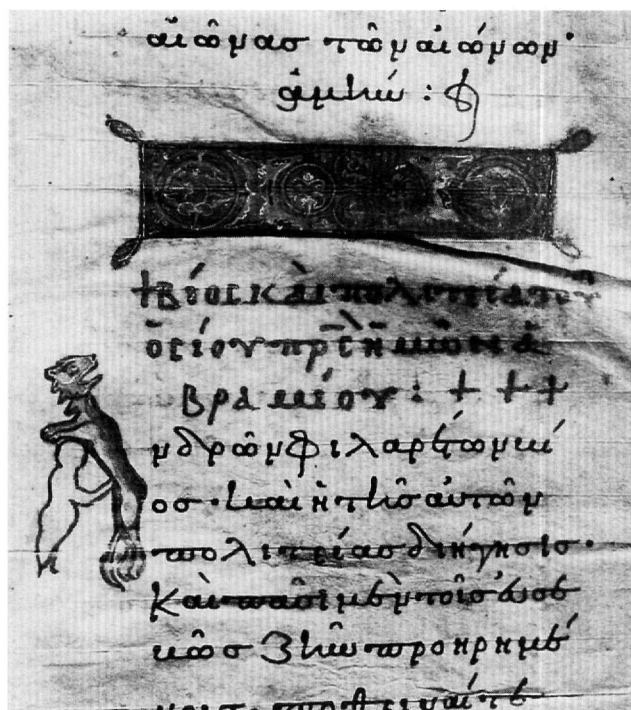 αἰῶνας τῶν αἰώνων·
ἀμήν :
+ Βίος καὶ πολιτεία τοῦ
ὁσίου πρς ἡμῶν ἀ
βραμίου : + + +
νδρῶν φιλαρέτων βί
ος· καὶ ἡ τῆς αὐτῶν
πολιτείας διήγησις·
καὶ πᾶσι μὲν τοῖς εὐσε
βῶς ζῆν προηρημέ
νοις·